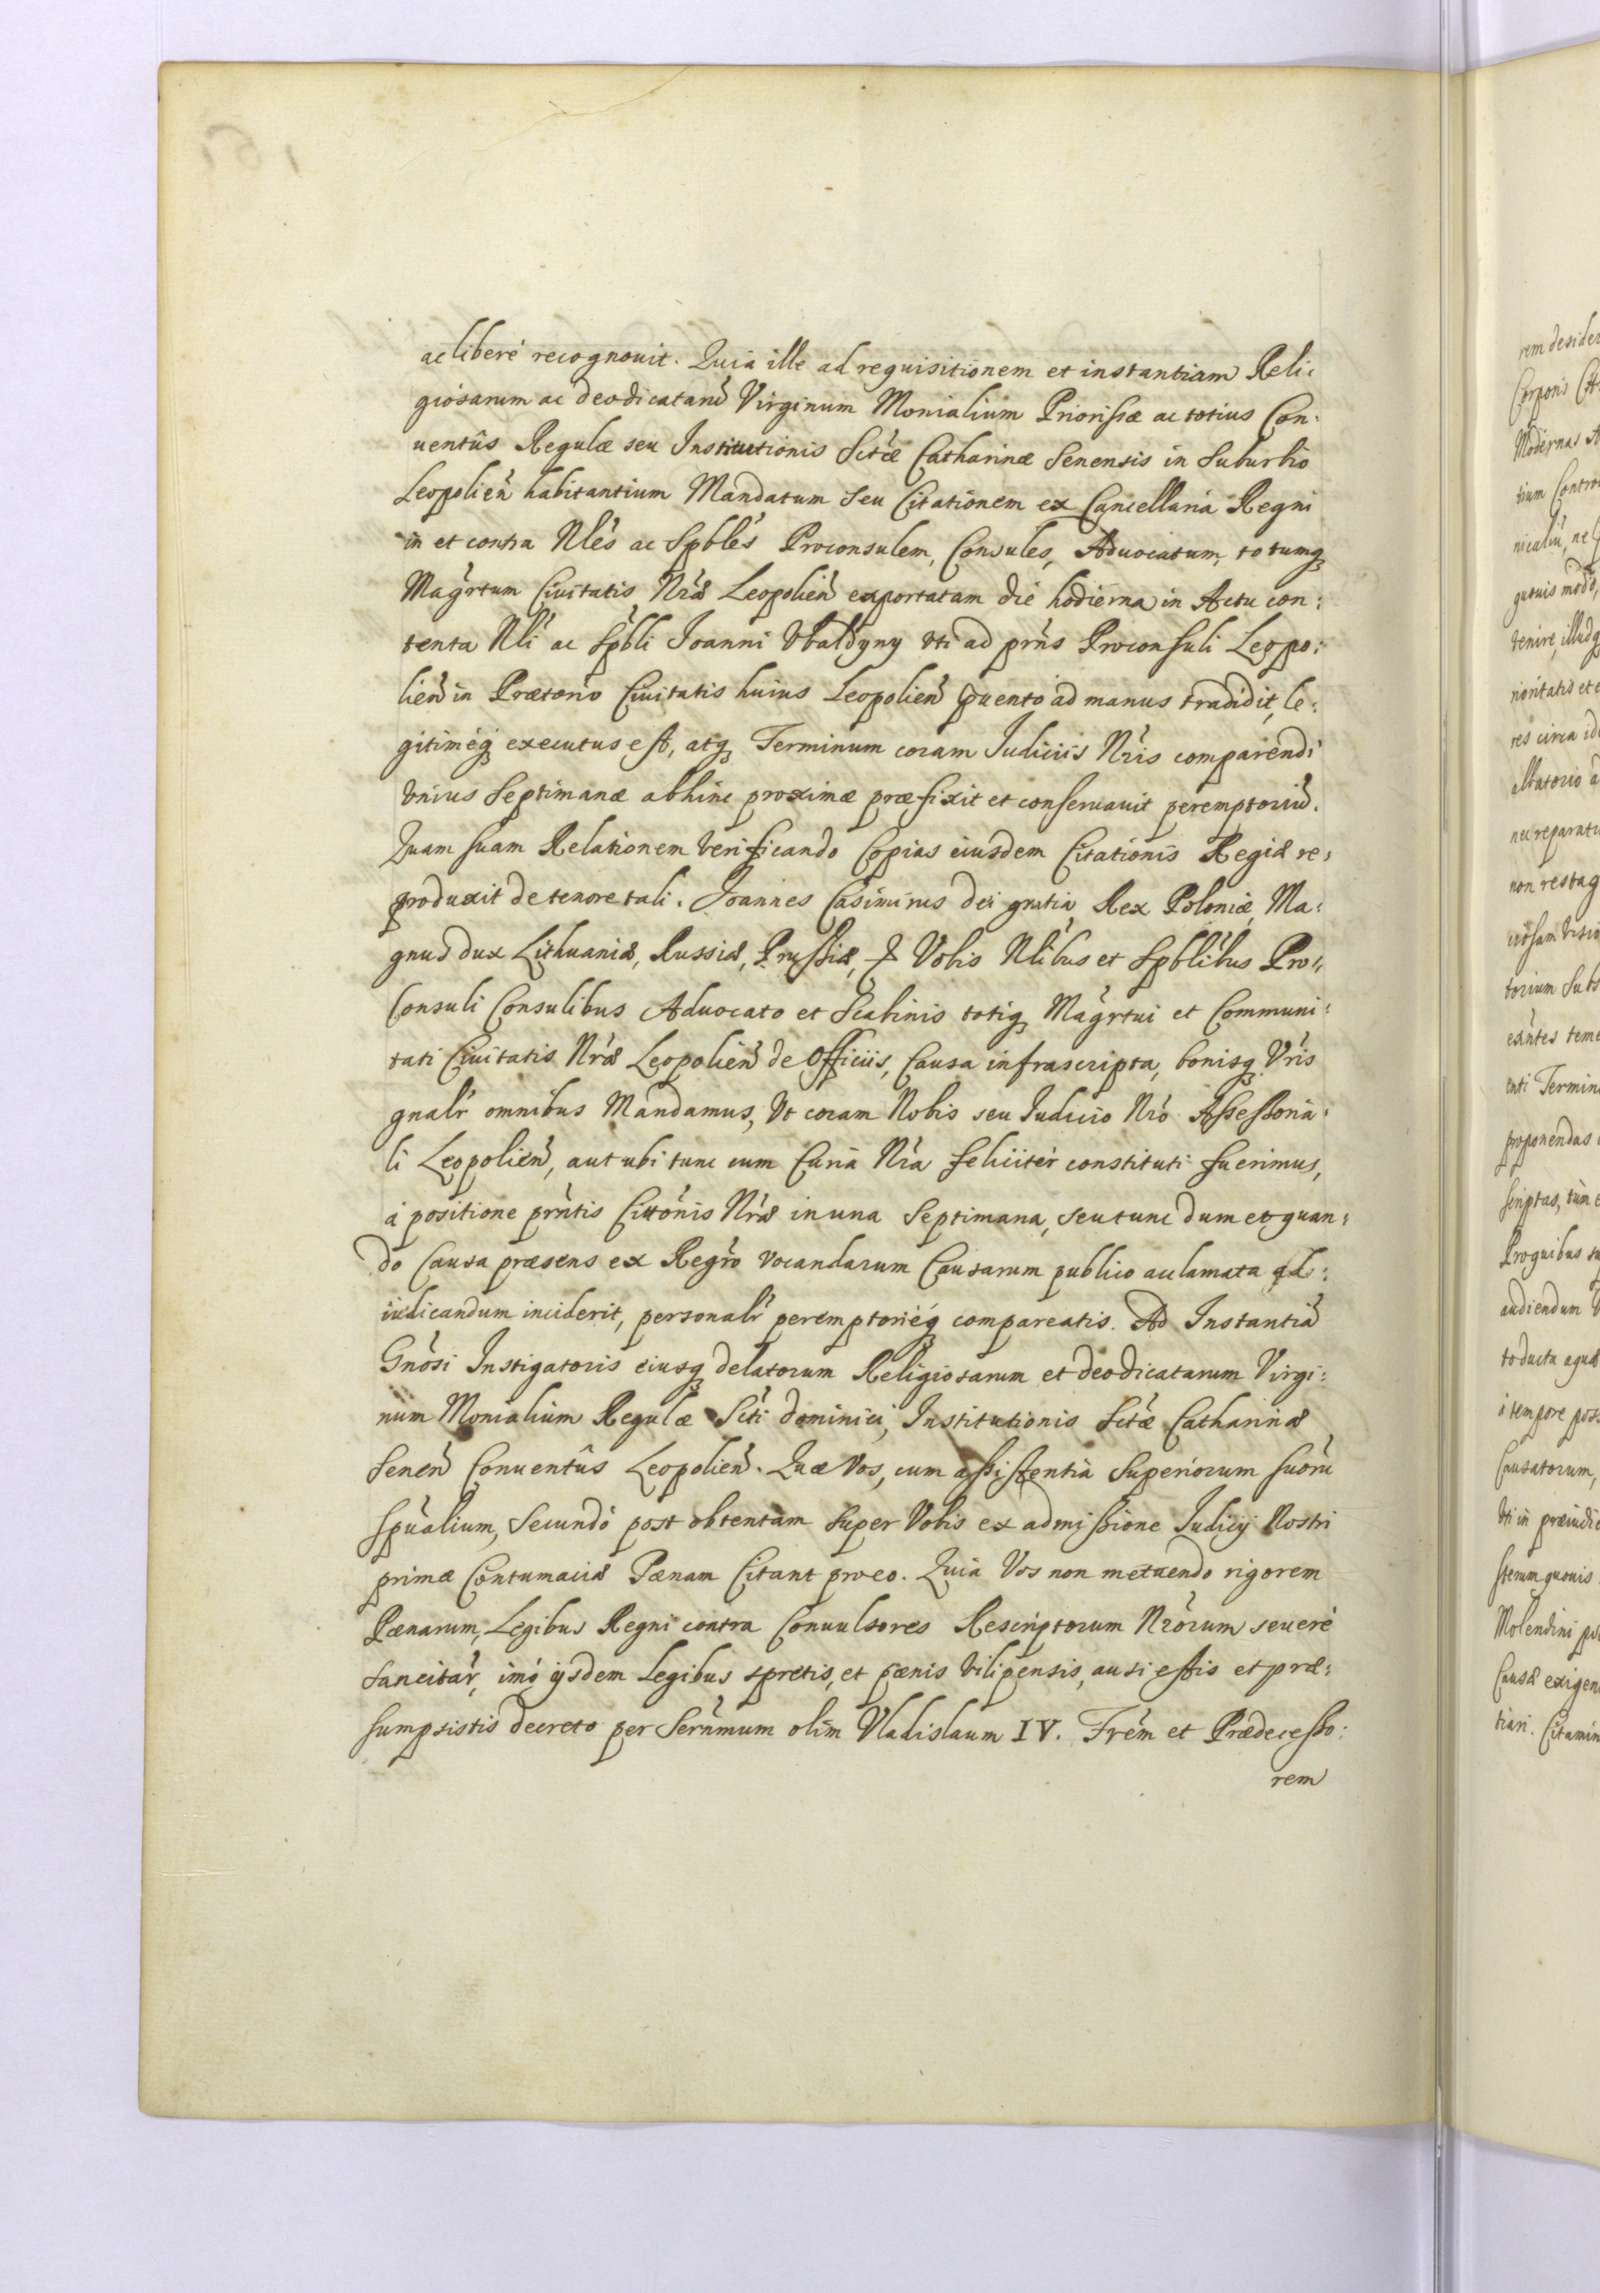 ac liberè recognouit. Quia ille ad requisitionem et instantiam Reli:
giosarum ac deodicatarũ Virginum Monialium Priorissæ ac totius Con:
uentûs Regulæ seu Institutionis Sctæ Catharinæ Senensis in Suburbio
Leopolien̄ habitantium Mandatum seu Citationem ex Cancellaria Regni
in et contra Nles ac Spbles Proconsulem, Consules, Aduocatum, totumq
Magrtum Ciuitatis Nræ Leopolien̄ exportatam die hodierna in Actu con:
tenta Nli ac Spbli Joanni Vbaldyny vti ad prns Proconsuli Leopo:
lien̄ in Prætorio Ciuitatis huius Leopolien̄ ad manus tradidit, le:
gitimeq executus est, atq Terminum coram Iudiciis Nris comparendi
vnius Septimanæ abhinc proximæ præfixit et conseruauit peremptoriũ.
Quam suam Relationem verificando Copias eiusdem Citationis Regiæ re:
produxit de tenore tali. Joannes Casimirus dei gratia Rex Poloniæ, Ma:
gnus dux Lithuaniæ, Russiæ, Prussiæ, Vobis Nlibus et Spblibus Pro:
Consuli Consulibus Aduocato et Scabinis totiq Magrtui et Communi:
tati Ciuitatis Nræ Leopolien̄ de Officiis, Causa infrascripta, bonisq Vris
gnalr omnibus Mandamus, Vt coram Nobis seu Iudicio Nro Assessoria:
li Leopolien̄, aut ubi tunc cum Curia Nra feliciter constituti fuerimus,
à positione prntis Cittonis Nræ in una Septimana, seu tunc dum et quan:
do Causa præsens ex Regro vocandarum Causarum publico acclamata ad:
iudicandum inciderit, personalr peremptorieq compareatis. Ad Instantiã
Gnosi Instigatoris eiusq delatorum Religiosarum et deodicatarum Virgi:
num Monialium Regulæ Scti Dominici, Institutionis Sctæ Catharinæ
Senen̄ Conuentûs Leopolien̄. Quæ Vos, cum assistentia Superiorum suorũ
spualium, Secundò post obtentam super Vobis ex admissione Iudicij Nostri
primæ Contumaciæ Pænam Citant pro eo. Quia Vos non metuendo rigorem
Pænarum, Legibus Regni contra Conuulsores Rescriptorum Nrorum seuerè
sancitar, imò ijsdem Legibus spretis, et pænis vilipensis, ausi estis et præ:
sumpsistis decreto per Sernmum olim Vladislaum IV. Frem et Prædecesso:
rem